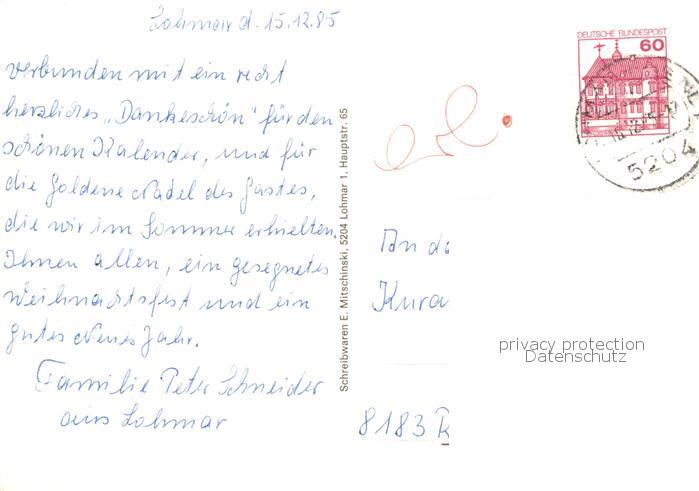 Lohmar d. 15.12.85
verbunden mit ein recht
herzliches „Dankeschön" für den
schönen Kalender, und für
die Goldene Nadel des Gastes,
die wir im Sommer erhielten.
Ihnen allen, ein gesegnetes
Weihnachtsfest und ein
gutes Neues Jahr.
Familie Peter Schneider
aus Lohmar
Schreibwaren E. Mitschinski, 5204 Lohmar 1, Hauptstr. 65
DEUTSCHE BUNDESPOST
60
5204
An d
Kura
privacy protection
Datenschutz
8183 R